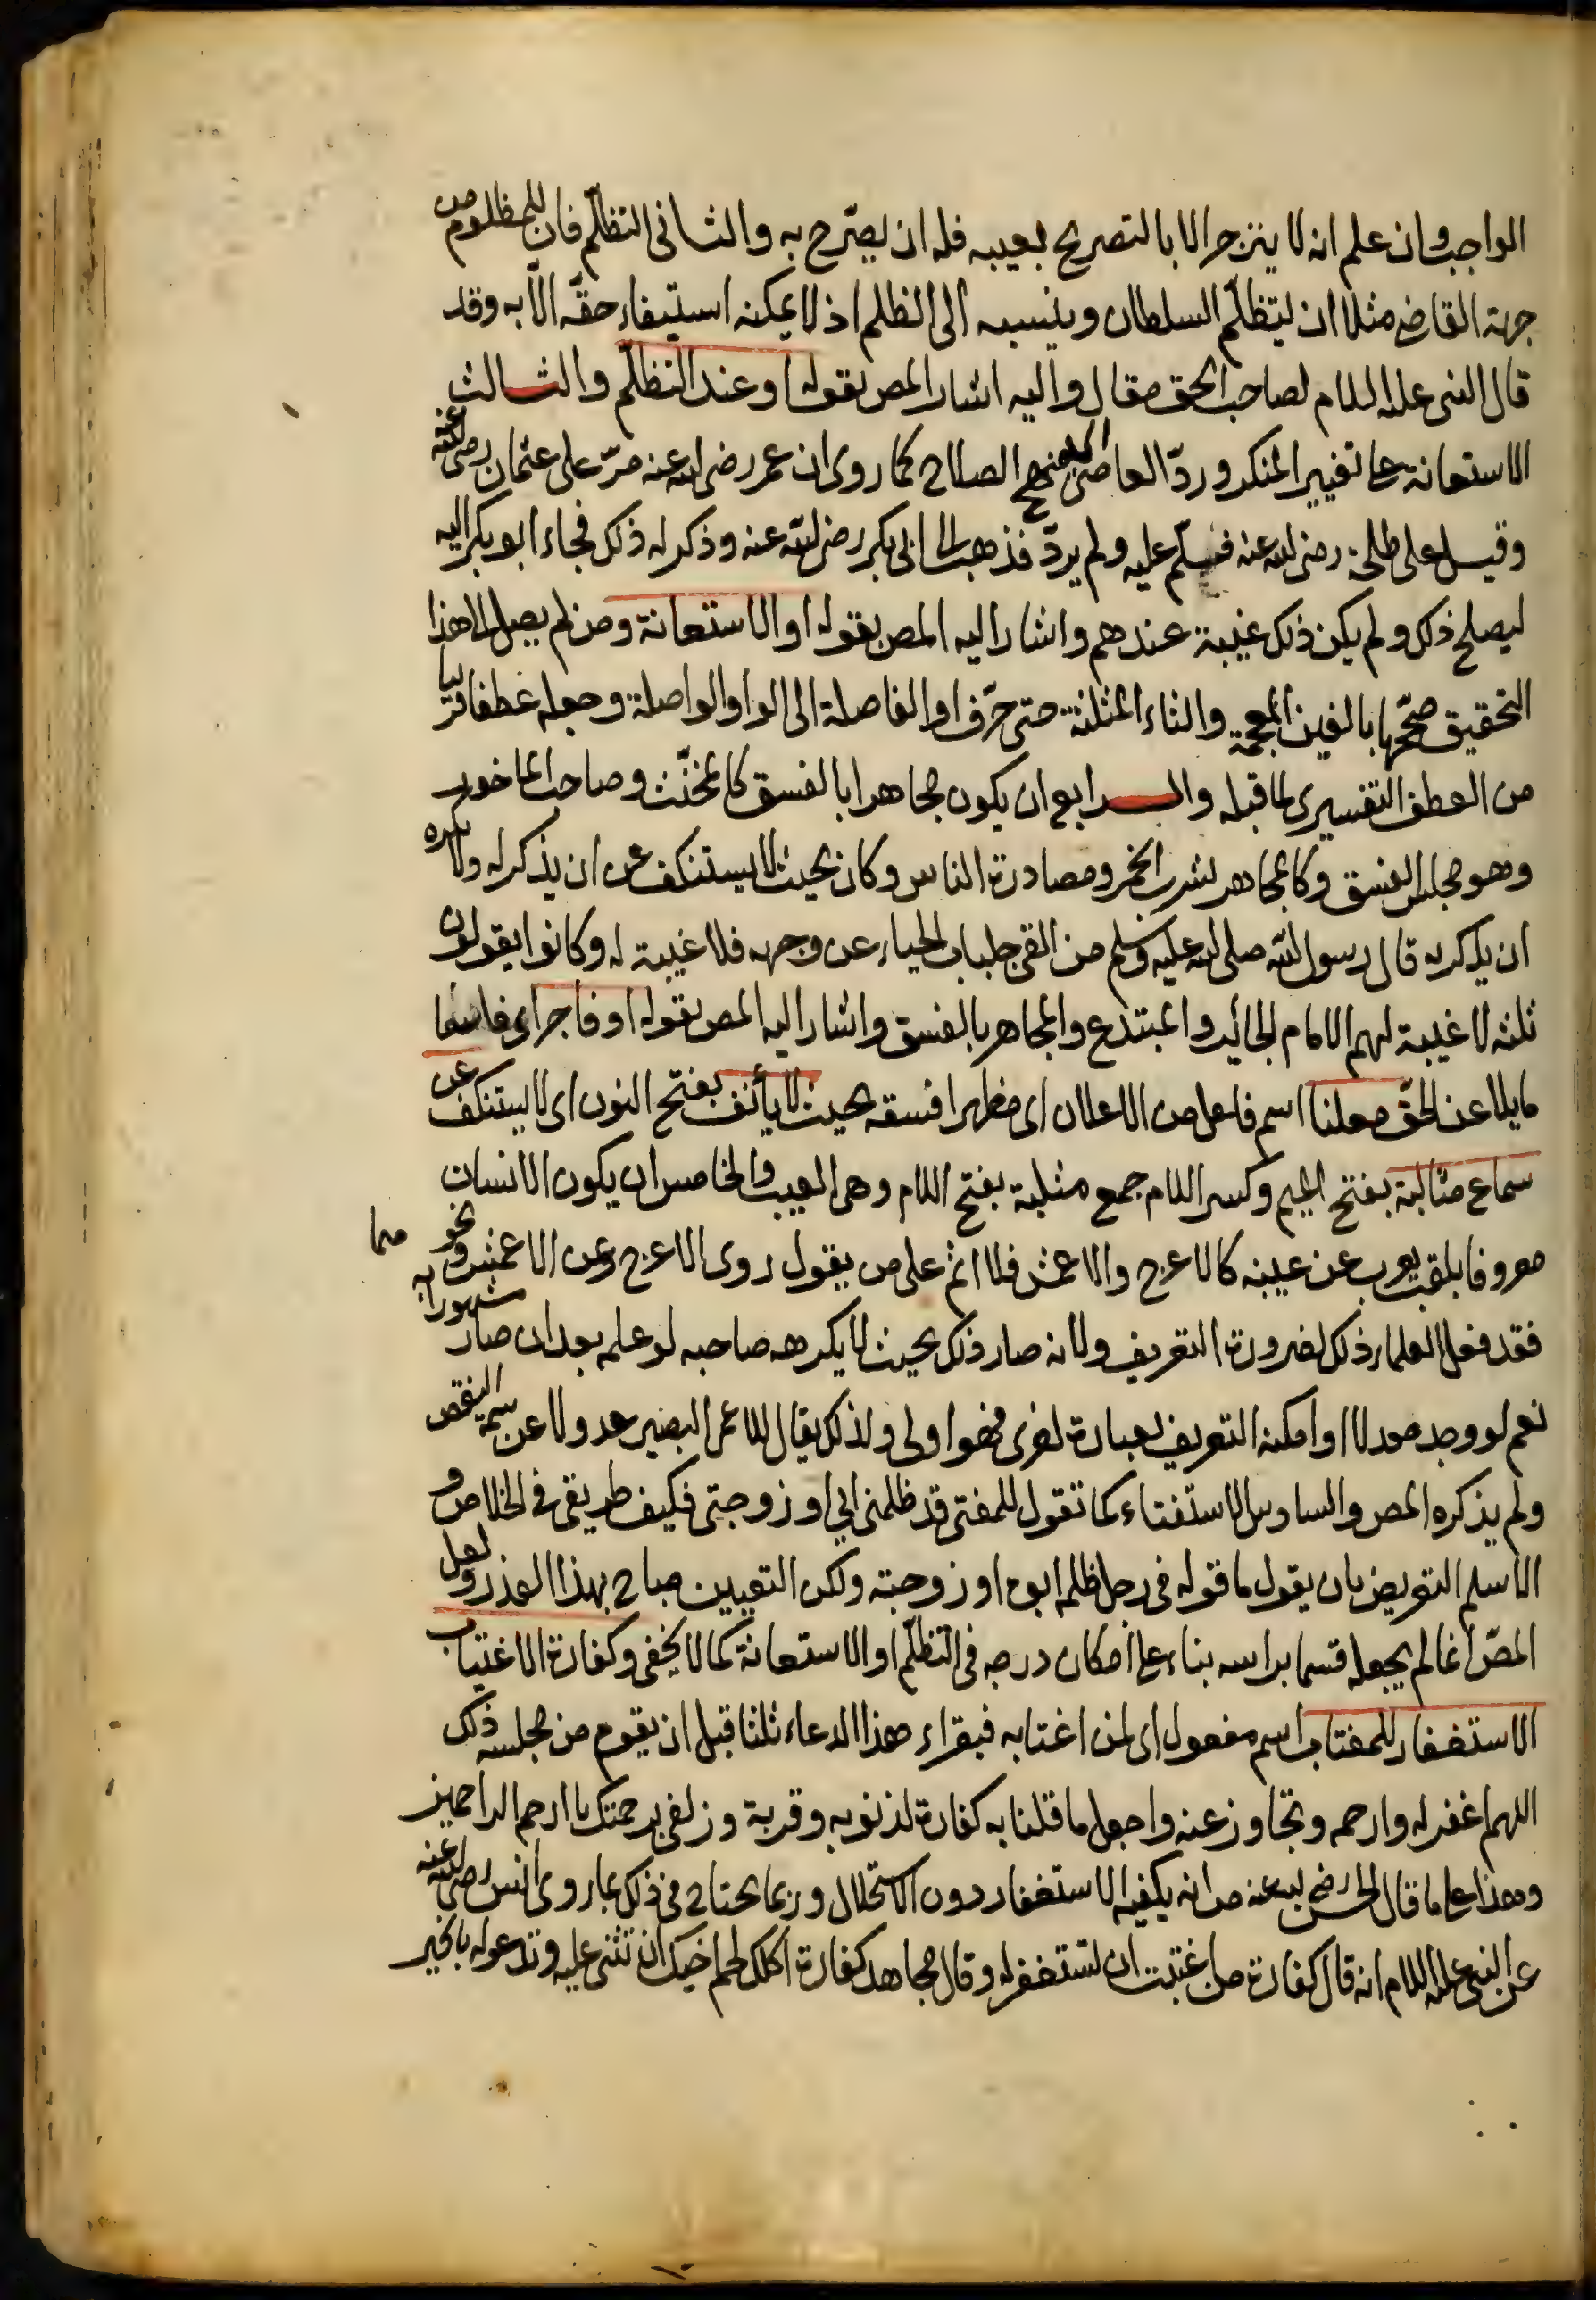 الواجب وان علم انه لا ينزجر الا بالتصريح بعيبه فله ان يصّرح به والثانى التظلّم فان للمظلوم من
جهة القاضى مثلا ان يتظلّم السلطان وينسبه الى الظلم اذ لا يمكنه استيفاء حقّه الّا به وقد
قال النبى عليه السلام لصاحب الحق مقال واليه اشار المص بقوله او عند التظلّم والثالث
الاستعانة على تغيير المنكر وردّ العاصى الى منهج الصلاح كما روى ان عمر رضى الله عنه مرّ على عثمان رضى الله عنه
وقيل على طلحة رضى الله عنه فسلّم عليه ولم يردّ فذهب الى ابى بكر رضى الله عنه وذكر له ذلك فجاء ابو بكر اليه
ليصلح ذلك ولم يكن ذلك غيبة عندهم واشار اليه المص بقوله او الاستعانة ومن لم يصل الى هذا
التحقيق صحّحها بالغين المعجمة والثاء المثلثة حتى حرّف او الفاصلة الى الواو الواصلة وجعله عطفا قريبا
من العطف التفسيرى لما قبله والرابع ان يكون مجاهرا بالفسق كالمخنّث وصاحب الماخور
وهو مجلس الفسق وكالمجاهر بشرب الخمر ومصادرة الناس وكان بحيث لا يستنكف عن ان يذكر له ولا يكره
ان يذكر به قال رسول الله صلى الله عليه وسلم من القى جلباب الحياء عن وجهه فلا غيبة له وكانوا يقولون
ثلثه لا غيبة لهم الامام الجائر والمبتدع والمجاهر بالفسق واشار اليه المص بقوله او فاجرا اى فاسقا
مايلا عن الحقّ معلنا اسم فاعل من الاعلان اى مظهرا فسقه بحيث لا يأنف بفتح النون اى لا يستنكف عن
سماع مثالبة بفتح الميم وكسر اللام جمع مثلبة بفتح اللام وهى العيب والخامس ان يكون الانسان
معروفا بلقب يعرب عن عيبه كالاعرج والاعمش فلا اثم على من يقول روى الاعرج وعن الاعمش ونحو هما
فقد فعل العلماء ذلك لضرورة التعريف ولانه صار ذلك بحيث لا يكرهه صاحبه لو علمه بعد ان صار مشهورا به
نعم لو وجد معدلا او امكنه التعريف بعبارة اخرى فهو اولى ولذلك يقال للاعمى البصير عدولا عن اسم النقص
ولم يذكره المص والسادس الاستفتاء كما تقول للمفتى قد ظلمنى ابى او زوجتى فكيف طريقى فى الخلاص و
الاسلم التعريض بان يقول ما قوله فى رجل ظلمه ابوه او زوجته ولكن التعيين مباح بهذا العذر ولعل
المصّ انما لم يجعله قسما براسه بناء على امكان درجه فى التظلّم او الاستعانة كما لا يخفى وكفارة الاغتياب
الاستغفار للمغتاب اسم مفعول اى لمن اغتابه فيقراء هذا الدعاء ثلثا قبل ان يقوم من مجلسه ذلك
اللهم اغفر له وارحمه وتجاوز عنه واجعل ما قلنا به كفارة لذنوبه وقربة وزلفى برحمتك يا ارحم الراحمين
وهذا على ما قال الحسن رضى الله عنه من انه يكفيه الاستغفار دون الاستحلال وربما يحتاج فى ذلك بما روى انس رضى الله عنه
عن النبى عليه السلام انه قال كفارة من اغتبت ان تستغفر له وقال مجاهد كفارة اكلك لحم اخيك ان تثنى عليه وتدعو له بالخير